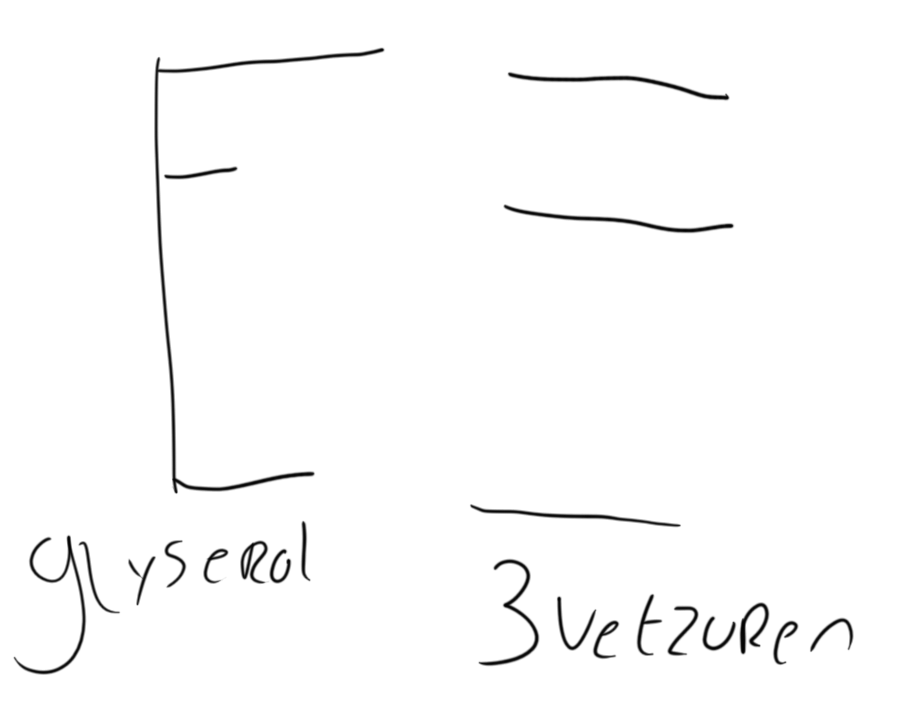 glyserol
3 vetzuren